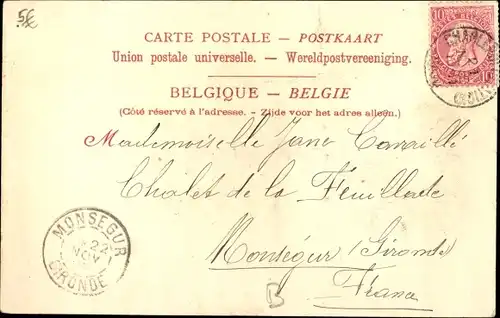 5€
CARTE POSTALE – POSTKAART
Union postale universelle. — Wereldpostvereeniging.
BELGIQUE – BELGIE
(Côté réservé à l'adresse. - Zijde voor het adres alleen.)
Mademoiselle Jane Cavaillé
Chalet de la Feuillerade
Monségur (Gironde)
France
MONSEGUR
22
NOV
GIRONDE
B
10
10
CHARLE